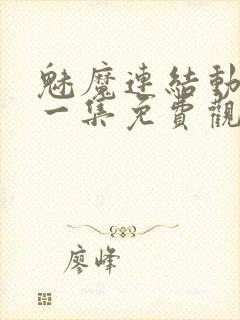 魅魔連結動
一集免費觀
廖峰